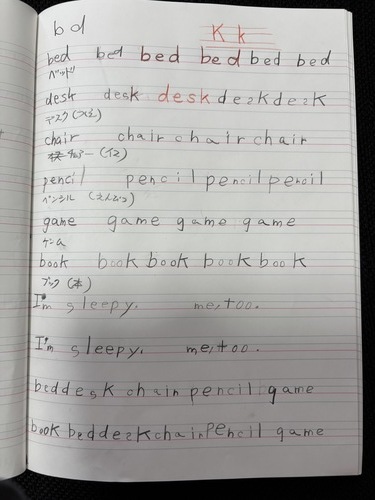 bd
K k
bed bed bed bed bed bed
ベッド
desk desk desk deskdesk
デスク(つくえ)
chair chair chair chair
チェアー(イス)
pencil pencil pencil pencil
ペンシル(えんぴつ)
game game game game
ゲーム
book book book book book
ブック(本)
I'm sleepy. me, too.
I'm sleepy. me, too.
beddesk chair pencil game
book beddeskchairpencil game